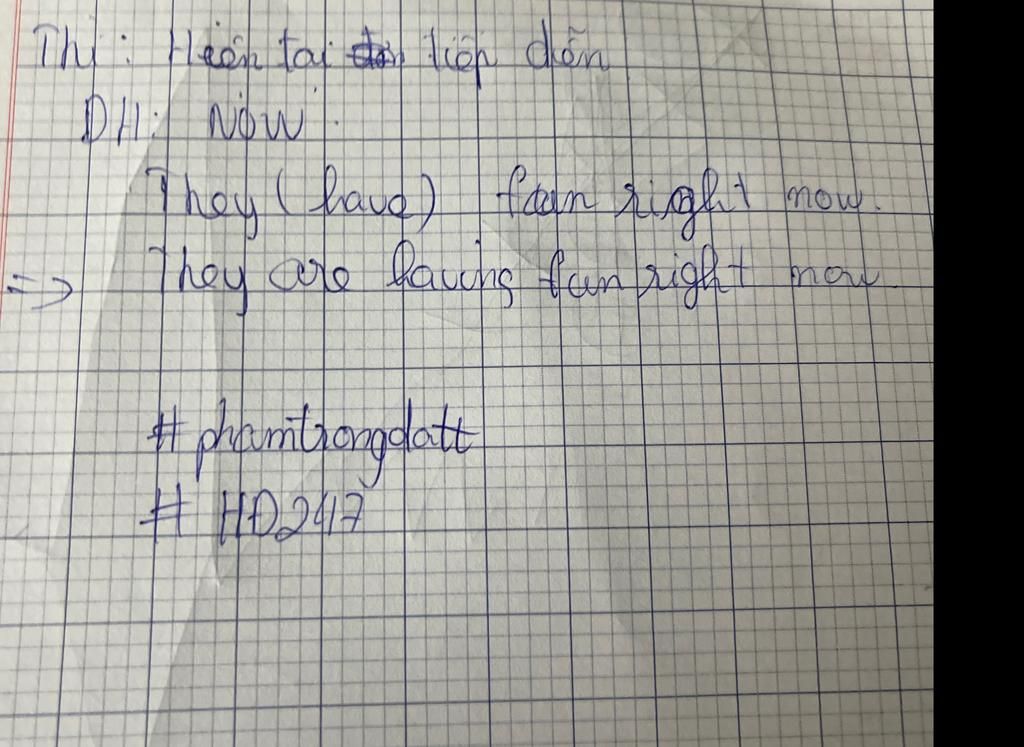 Thì: Hiện tại tiếp diễn
DH: Now.
They (have) fun right now.
=> They are having fun right now.
# phamtrongdatt
# HD2417